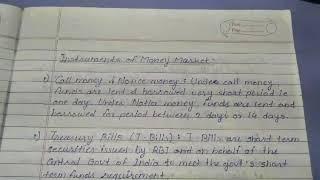 Instruments of Money Market:
1) Call money & Notice money: Under call money,
funds are lent & borrowed very short period i.e
one day. Under Notice money, funds are lent and
borrowed for period between 2 days or 14 days.
2) Treasury Bills (T-Bills): T-Bills are short term
securities issued by RBI and on behalf of the
Central Govt of India to meet the govt's short
term funds requirement.